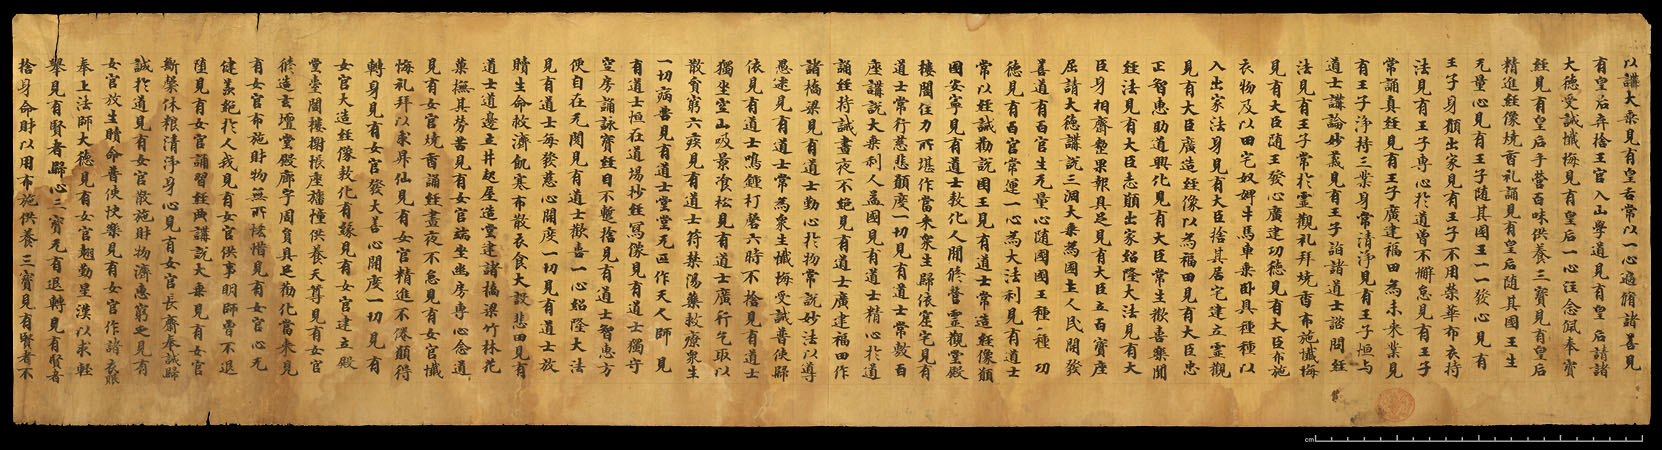 以講大乘見有皇后常以一心遍脩諸善見
有皇后弃捨王官入山學道見有皇后請諸
大德受誡懺悔見有皇后一心汪念佩奉寶
經見有皇后手營百味供養三寶見有皇后
精進經像燒香礼誦見有皇后随其國王生
无量心見有王子随其國王一一發心見有
王子身願出家見有王子不用榮華布衣持
法見有王子專心於道曾不懈怠見有王子
常誦真經見有王子廣建福田為未來業見
有王子浄持三業身常清浄見有王子恒与
道士講論妙義見有王子詣諸道士諮問經
法見有王子常於靈觀礼拜燒香布施懺悔
見有大臣随王發心廣建功德見有大臣布施
衣物及以田宅奴婢牛馬車乘卧具種種以
入出家法身見有大臣捨其居宅建立靈觀
見有大臣廣造經像以為福田見有大臣忠
正智惠助道興化見有大臣常生歡喜樂聞
經法見有大臣志願出家紹隆大法見有大
臣身相齊整果報具足見有大臣立百寶座
屈請大德講說三洞大乘為國主人民開發
善道見有百官生无量心随國國王種種功
德見有百官常運一心為大法利見有道士
常以經誡勸說國王見有道士常造經像願
國安寧見有道士教化人間脩營靈觀堂殿
樓閣住力所堪作當來衆生歸依窟宅見有
道士常行慈悲願度一切見有道士常敷百
座講說大乘利人益國見有道士精心於道
誦經持誡晝夜不絶見有道士廣建福田作
諸橋梁見有道士勤心於物常說妙法以導
愚迷見有道士常為衆生懺悔受誡普使歸
依見有道士鳴鍾打磬六時不捨見有道士
獨坐空山吸景飡松見有道士廣行乞取以
散貧窮六疾見有道士符禁湯藥救療衆生
一切病善見有道士堂堂无匹作天人師見
有道士恒在道場抄經寫像見有道士獨守
空房誦詠寶經目不蹔捨見有道士智惠方
便自在无閡見有道士歡喜一心紹隆大法
見有道士每發慈心開度一切見有道士放
贖生命救濟飢寒布散衣食大設悲田見有
道士道邊立井起屋造堂建諸橋梁竹林花
菓撫其勞苦見有女官端坐幽房專心念道
見有女官燒香誦經晝夜不怠見有女官懺
悔礼拜以求昇仙見有女官精進不倦願得
轉身見有女官發大善心開度一切見有
女官大造經像教化有緣見有女官建立殿
堂臺閣樓榭帳座旛幢供養天尊見有女官
脩造玄壇堂殿廊宇周負具足勸化當來見
有女官布施財物無所恡惜見有女官心无
健羨絶於人我見有女官供事明師曾不退
堕見有女官誦習經典講說大乘見有女官
斷榮休粮清浄身心見有女官長齋奉誡歸
誠於道見有女官散施財物濟惠窮乏見有
女官放生贖命普使快樂見有女官作諸衣服
奉上法師大德見有女官翹勤星漢以求輕
舉見有賢者歸心三寶无有退轉見有賢者
捨身命財以用布施供養三寶見有賢者不